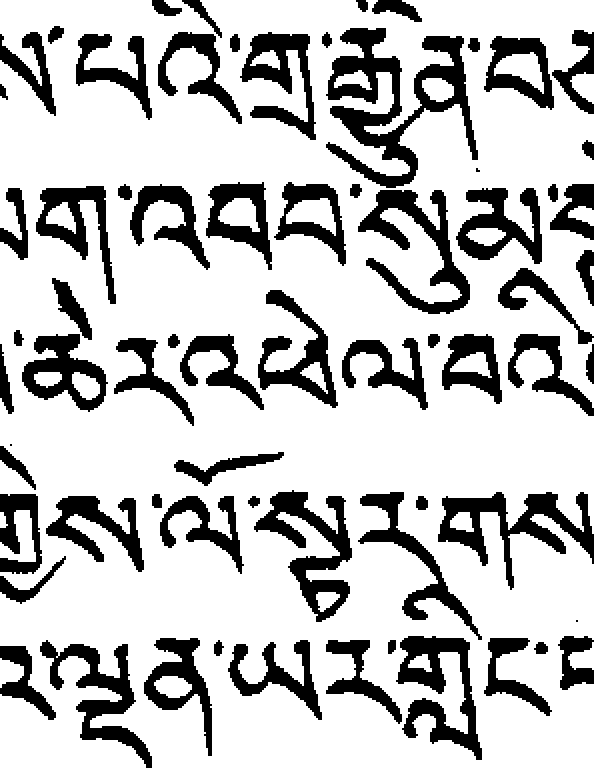 ས་པའི་གྲ་རྒྱུན་བ
ག་འབབ་སུམ་
ཆེར་འཕེལ་བའི
གྱིས་ལོ་སྟར་གས
ར་ལྡན་ཡར་གླིང་